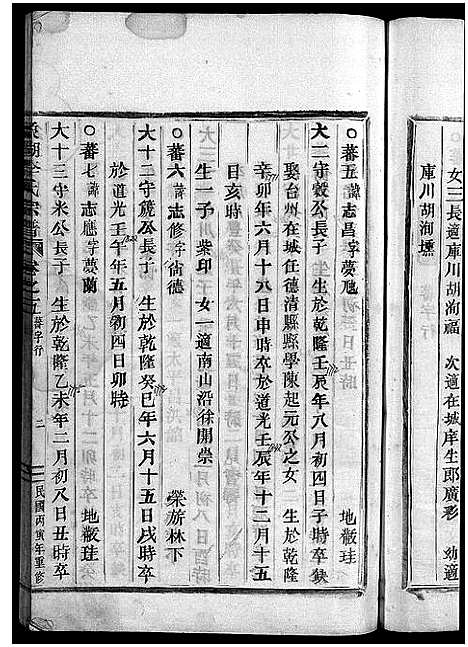 女三長適庫川胡洵福　次適在城庠生郎廣彩　幼適
庫川胡洵壎
○蕃五諱志昌字夢虺　地蔽珪
大二守㲄公長子　生於乾隆壬辰年八月初四日子時卒缺
娶台州在城任德清縣縣學陳起元公之女　生於乾隆
辛卯年六月十八日申時卒於道光壬辰年十二月十五
日亥時
生一子川紫印子　女一適南山沿徐開崇
○蕃六諱志修字尚德　榮旂林下
大十二守蔬公長子　生於乾隆癸巳年六月十五日戌時卒
於道光壬午年五月初四日卯時
○蕃七諱志應字夢蘭　地蔽珪
大十三守米公長子　生於乾隆乙未年二月初八日丑時卒
李氏宗譜　卷之五　蕃字行　二　民國丙寅年重修